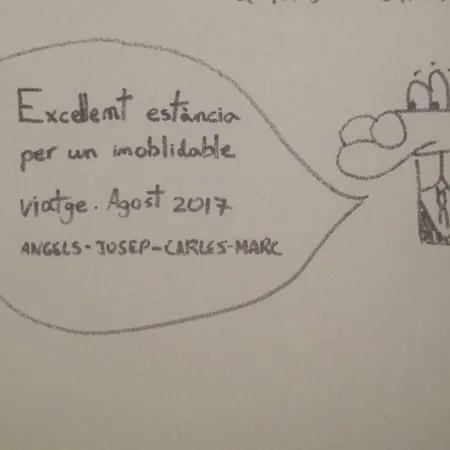 Excellent estància
per un imoblidable
viatge. Agost 2017
ANGELS-JOSEP-CARLES-MARC